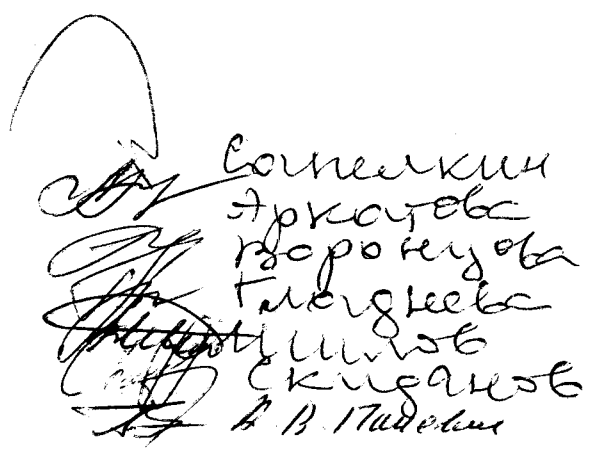 Сапелкин
Аркатова
Воронцова
Гладнева
Шилов
Скиданов
А В